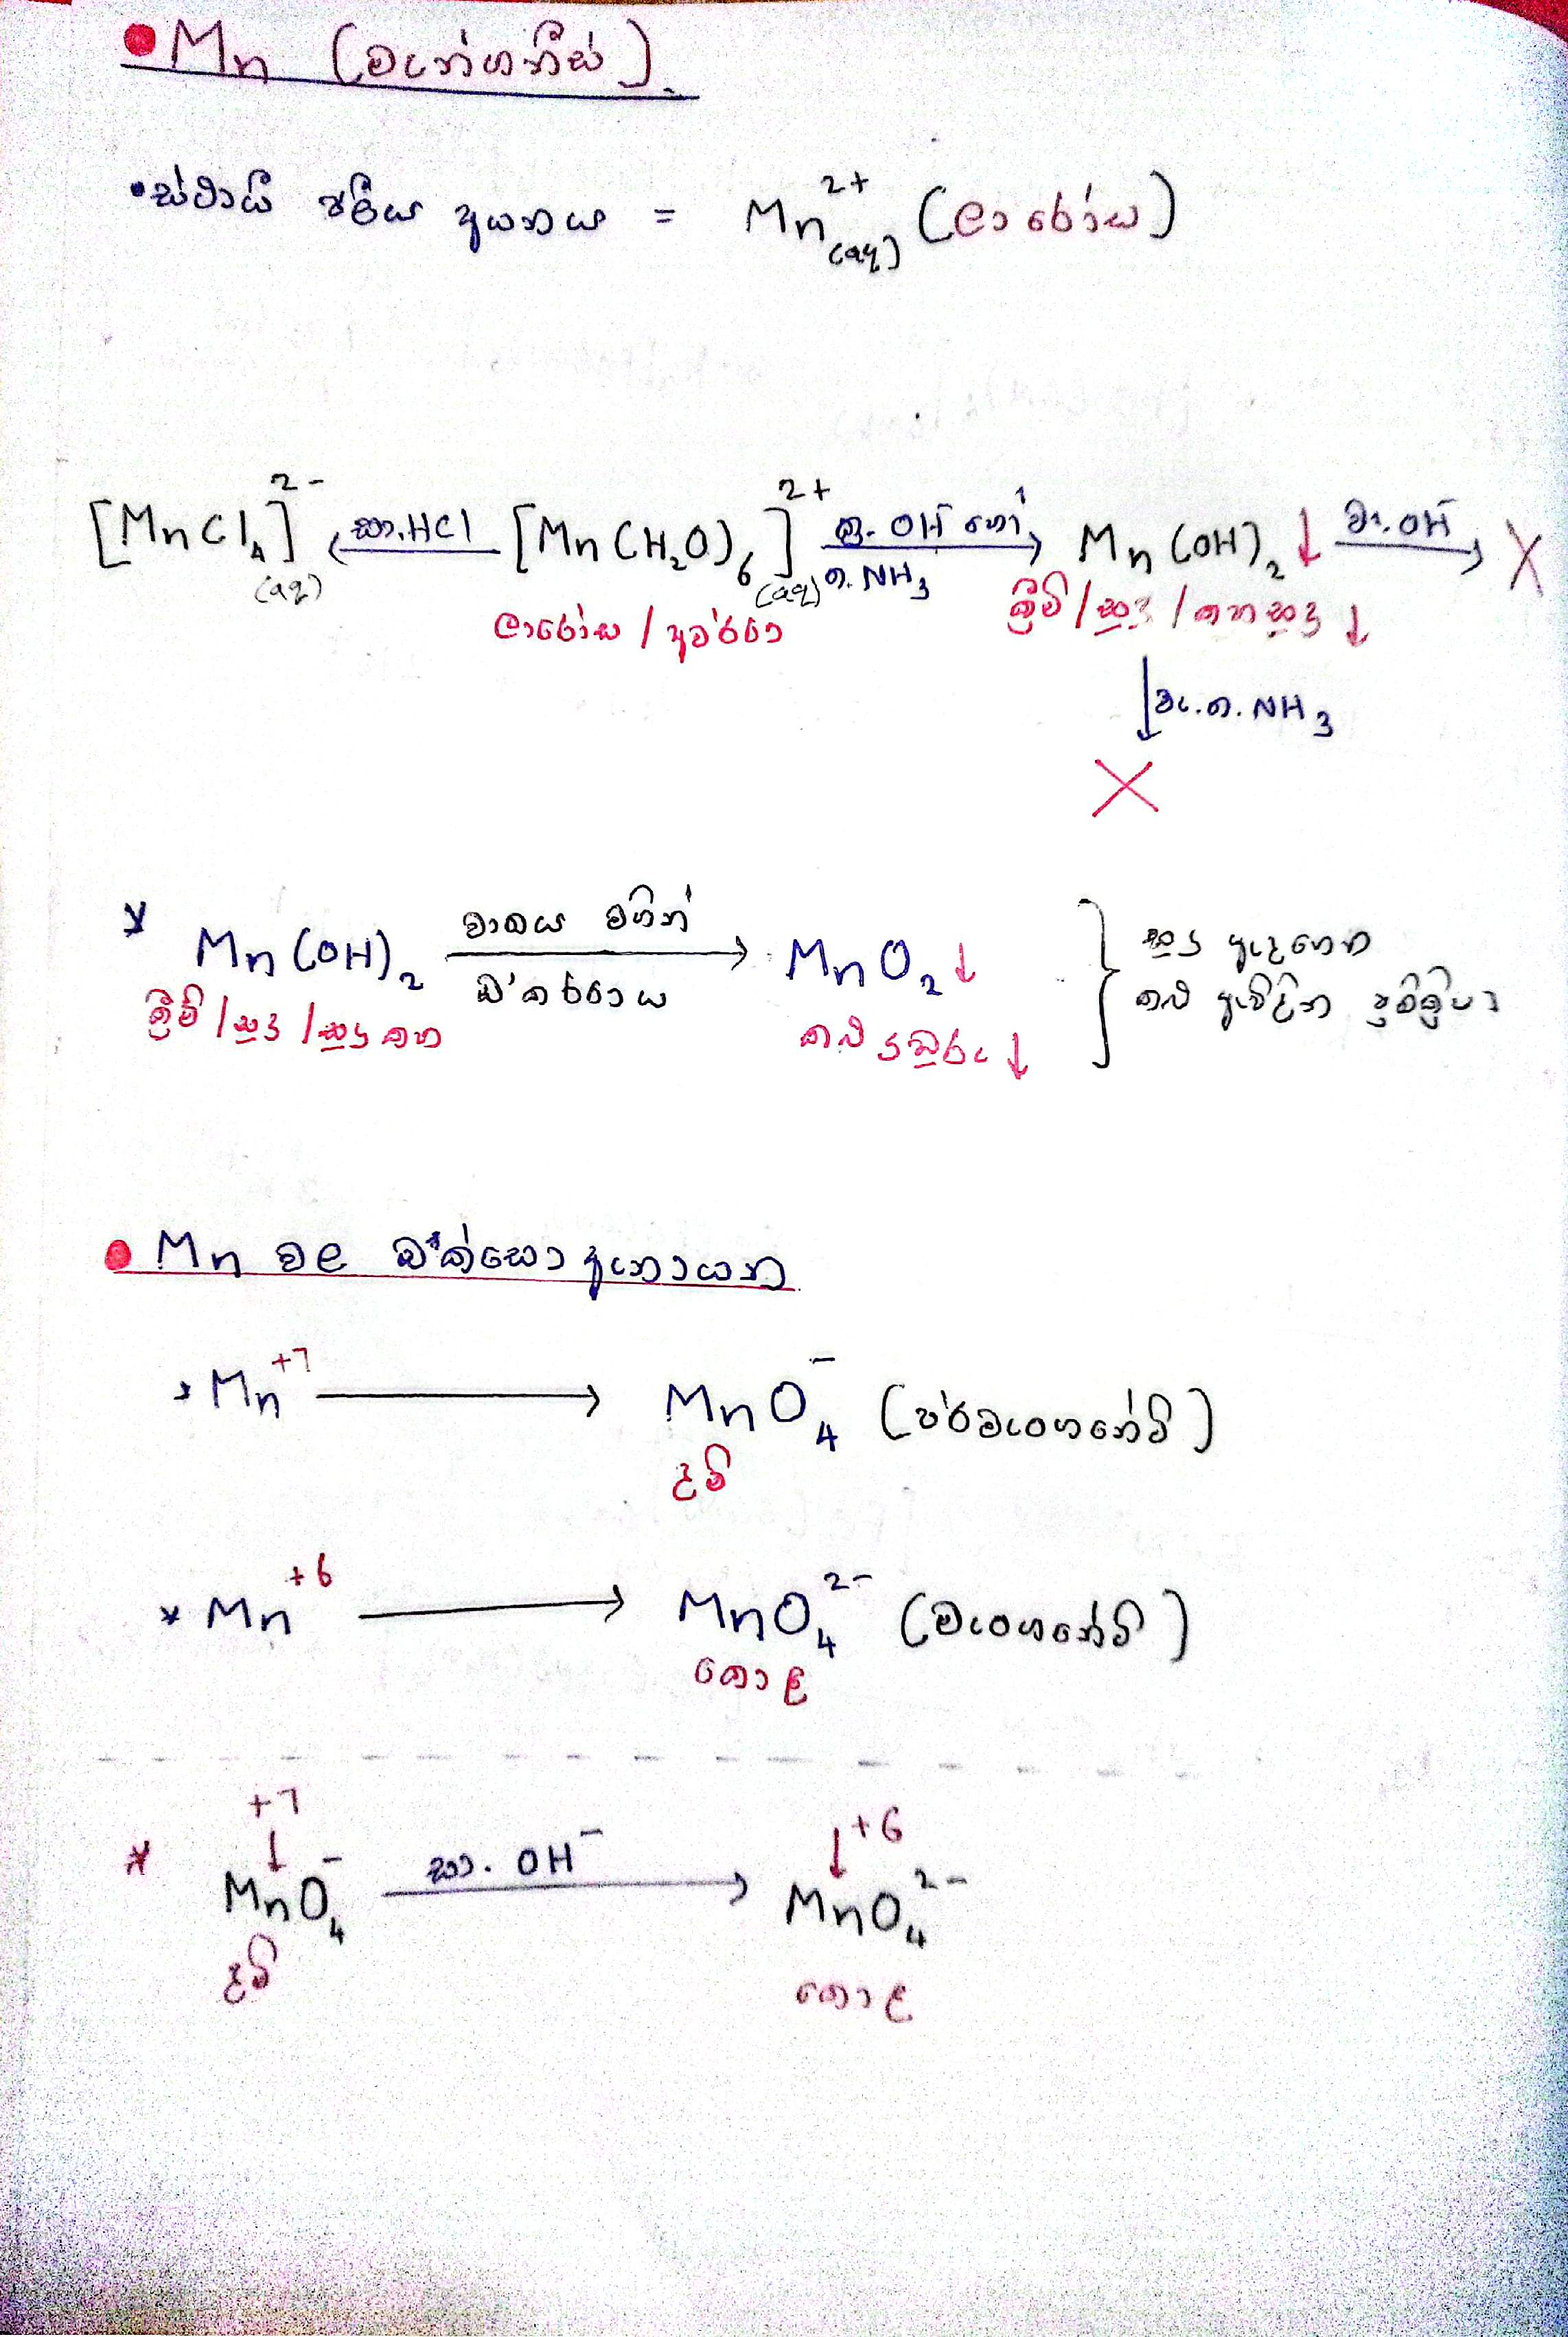 • Mn (මැන්ගනීස්)
• ස්ථායී ජලීය අයනය = Mn²⁺(aq) (ලා රෝස)
[MnCl₄]²⁻(aq) ←සා.HCl— [Mn(H₂O)₆]²⁺(aq) —ත. OH⁻ හෝ / ත. NH₃→ Mn(OH)₂↓ —වැ. OH⁻→ X
ලා රෝස / අවර්ණ    ක්‍රීම් / සුදු / කහ සුදු ↓
↓ වැ.ත. NH₃
X
* Mn(OH)₂ —වාතය මගින් / ඔක්කරණය→ MnO₂↓ }
ක්‍රීම් / සුදු / සුදු කහ    කළු දුඹුරු ↓
• Mn වල ඔක්සො ඇනායන
* Mn⁺⁷ ⟶ MnO₄⁻ (පර්මැංගනේට්)
දම්
* Mn⁺⁶ ⟶ MnO₄²⁻ (මැංගනේට්)
කොළ
+7 ↓    ↓ +6
* MnO₄⁻ —සා. OH⁻→ MnO₄²⁻
දම්    කොළ